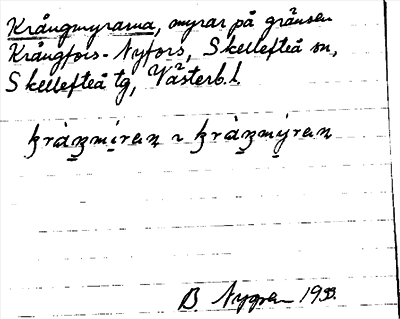 Krångmyrarna, myrar på gränsen
Krångfors-Nyfors, Skellefteå sn,
Skellefteå tg, Västerb. l.
kråŋmìran ~ kråŋmýran
B. Nygren 1933.